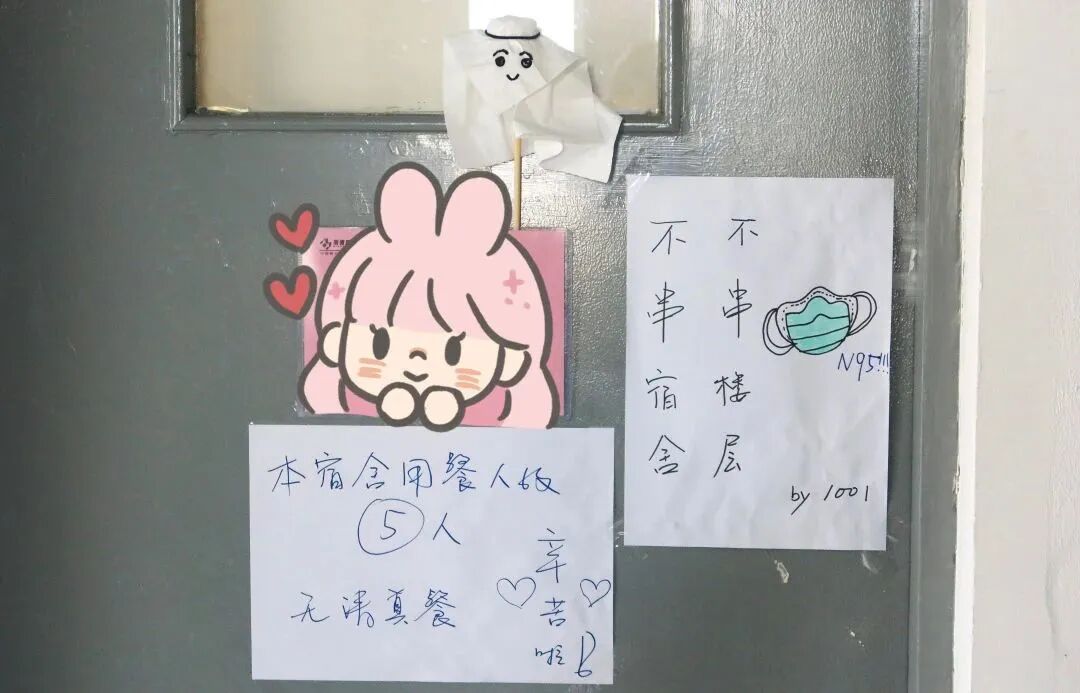 本宿舍用餐人数
5人
无清真餐
辛苦啦
不串楼层
不串宿舍
N95!!!
by 1001